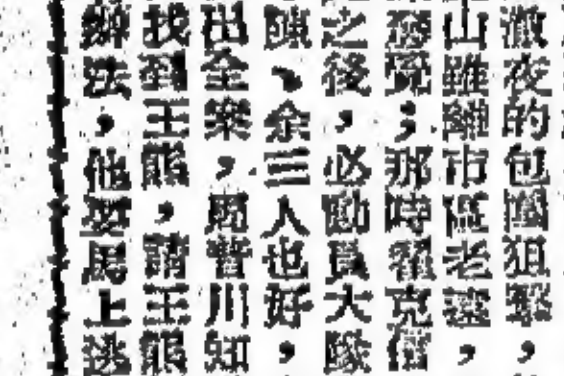 澈夜的包圍狙擊，
山雖離市區老遠，
發覺；那時羅克信
之後，必動員大隊
陳、余三人也好，
出全來，周晉川知
找到王熊，請王熊
辦法，他要馬上逃